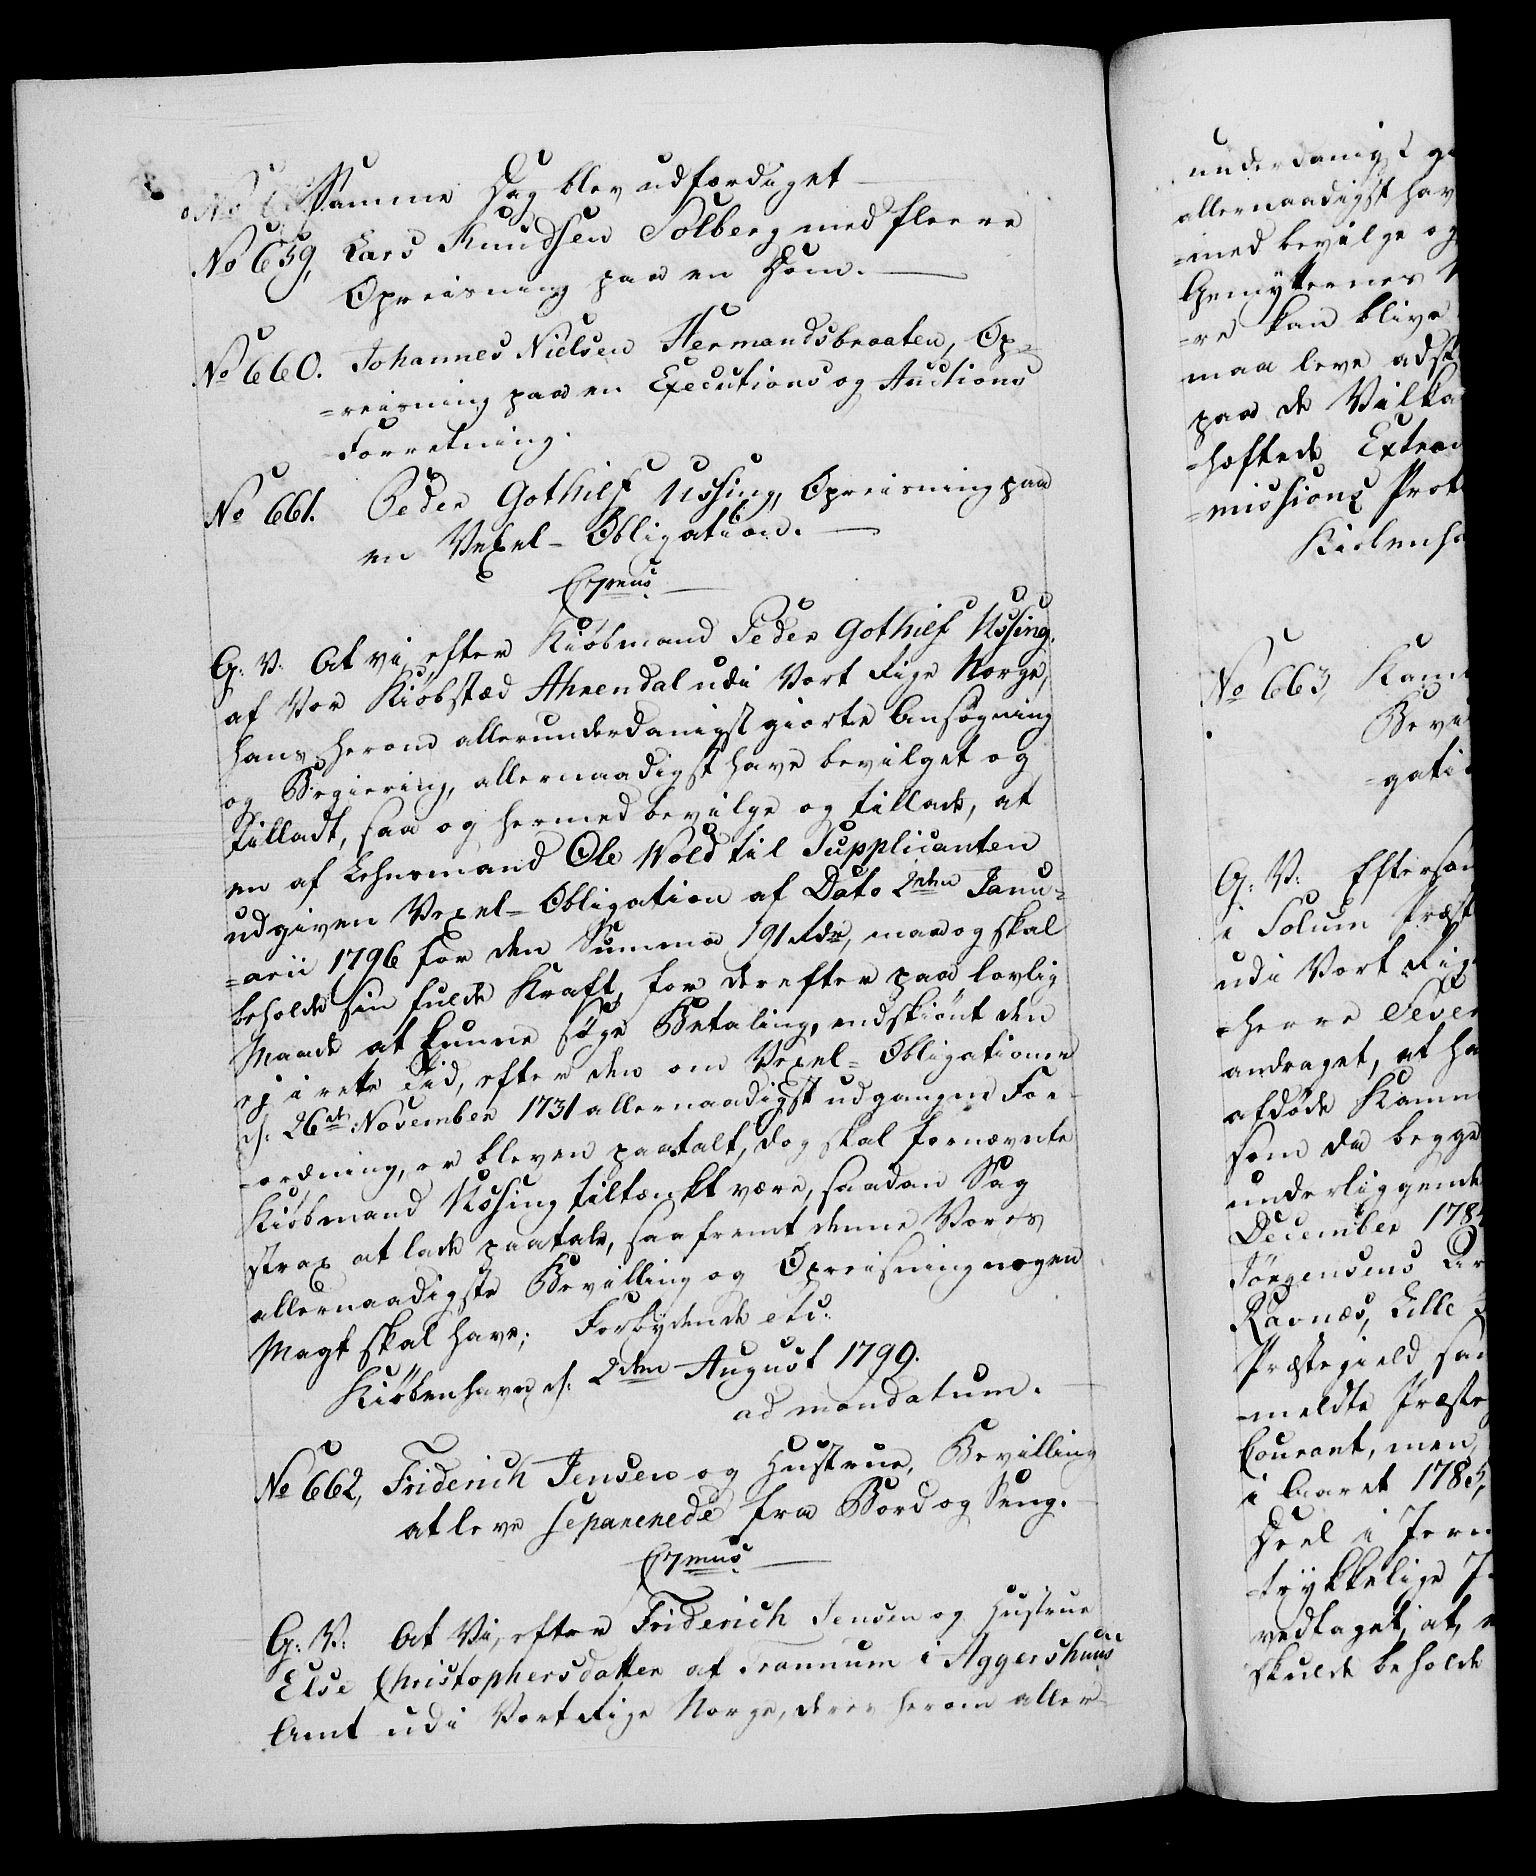 Samme Dag blev udfærdiget
No 659, Lars Knudsen Solberg med fleere
Opreisning paa en Dom.
No 660. Johannes Nielsen Hermandsbraaten, Op=
=reisning paa en Executions og Auctions
Forretning.
No 661. Peder Gothilf Ussing, Opreisning paa
en Vexel- Obligation.
G: V: At vi, efter Kiøbmand Peder Gothilf Ussing
af Vor Kiøbstæd Ahrendal udi Vort Rige Norge,
hans herom allerunderdanigst giorte Ansøgning
og Begiering, allernaadigst have bevilget og
tilladt, saa og hermed bevilge og tillade, at
en af Lehnsmand Ole Wold til Supplicanten
udgiven Vexel=Obligation af Dato 2den Janu=
=arii 1796 for den Summa 191 Rdr, maa og skal
beholde sin fulde Kraft, for derefter paa lovlig
Maade at kunne søge Betaling, endskiønt den
ej i rette Tid, efter den om Vexel=Obligationer
d: 26de November 1731 allernaadigst udgangne For-
-ordning, er bleven paatalt, dog skal fornævnte
Kiøbmand Ussing tiltænkt være, saadan Sag
strax at lade paatale, saafremt denne Vores
allernaadigste Bevilling og Opreisning nogen
Magt skal have; Forbydende etc.
Kiøbenhavn d: 2den August 1799.
ad mandatum.
No 662, Friderich Jensen og Hustrue, Bevilling
at leve separerede fra Bord og Seng.
G: V: At Vi, efter Friderich Jensen og Hustrue
Else Christophersdatter af Trannum i Aggershuus
Amt udi Vort Rige Norge, deres herom aller-
underdanigst
allernaadigst hav
=med bevilge og
Gemytternes
=re kan blive
maa leve adsk
paa de Vilka
=hæftede Extra
=missions Prot
Kiøbenh
No 663, Kam
Bevi
=gati
G: V: Eftersom
i Solum Præst
udi Vort Rig
=herre Sever
andraget, at ha
afdøde Kamm
som da begge
underliggende
December 178
Jørgensens
Ravnæs, Lille
Præstegield sa
=meldte Præste
Courant, men,
i Aaret 1785,
Deel i Jern
=trykkelige
vedtaget, at,
skulde beholde